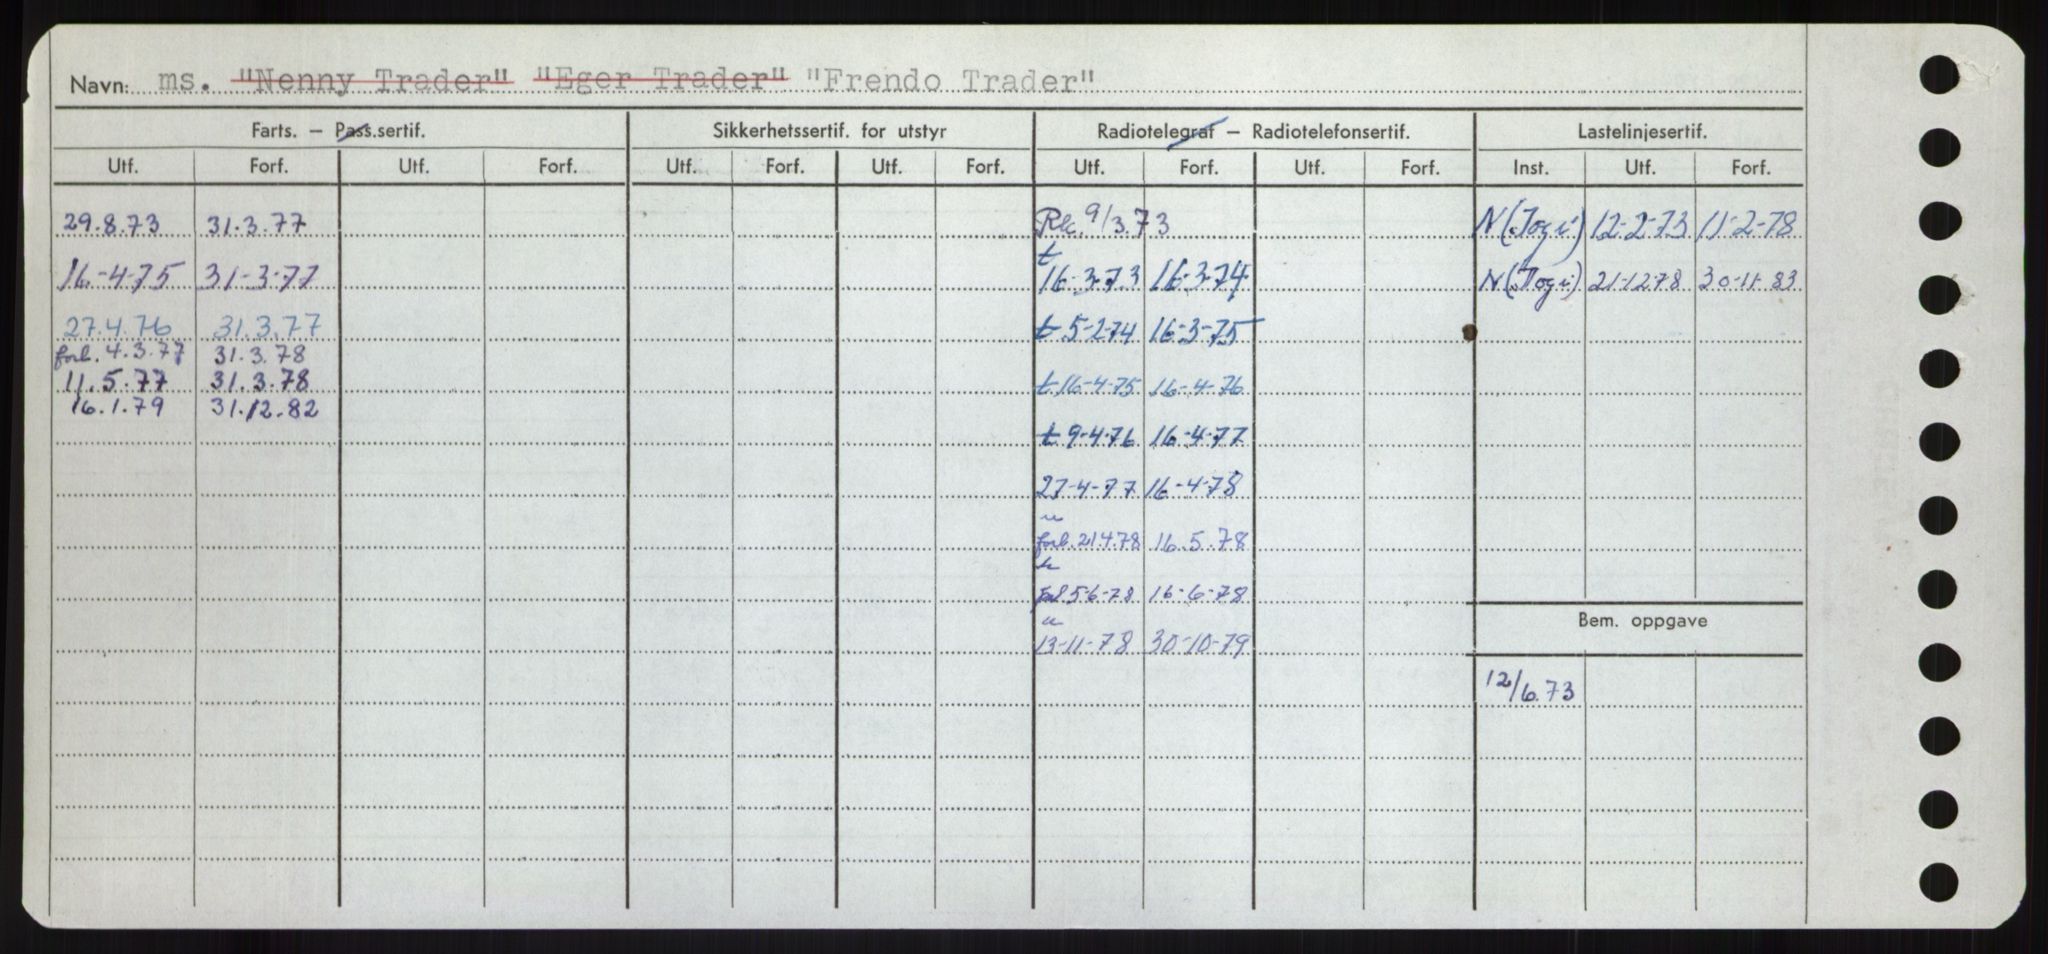 Navn: ms. "Nenny Trader" "Eger Trader" "Frendo Trader"
Farts. – Pass.sertif. Sikkerhetssertif. for utstyr Radiotelegraf – Radiotelefonsertif. Lastelinjesertif.
Utf. Forf. Utf. Forf. Utf. Forf. Utf. Forf. Utf. Forf. Utf. Forf. Inst. Utf. Forf.
29.8.73 31.3.77 9/3.73 N (Togi) 12-2-73 11-2-78
t
16-4-75 31-3-77 16-3-73 16-3-74 N (Togi) 21-12-78 30-11-83
27.4.76 31.3.77 t 5-2-74 16-3-75
forl. 4.3.77 31.3.78
11.5.77 31.3.78 t 16-4-75 16-4-76
16.1.79 31.12.82
t 9-4-76 16-4-77
27-4-77 16-4-78
forl. 21.4.78 16.5.78
5-6-78 16-6-78
Bem. oppgave
13-11-78 30-10-79
12/6.73